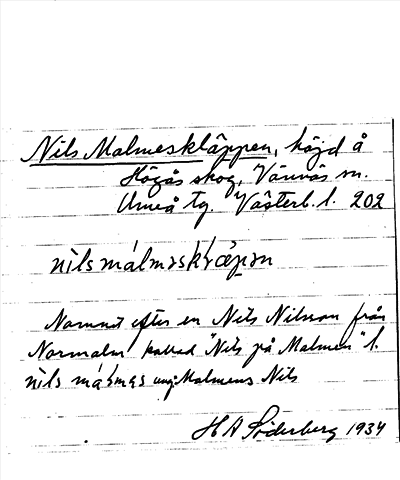 Nils Malmesklåppen, höjd å
Högås skog, Vännäs sn.
Umeå tg. Västerb. l. 202
nils málmaskḷåpən
Namnet efter en "Nils Nilsson från
Normalm" kallad "Nils på Malmen" l.
nils málmas ung. Malmens Nils
H A Söderberg 1934